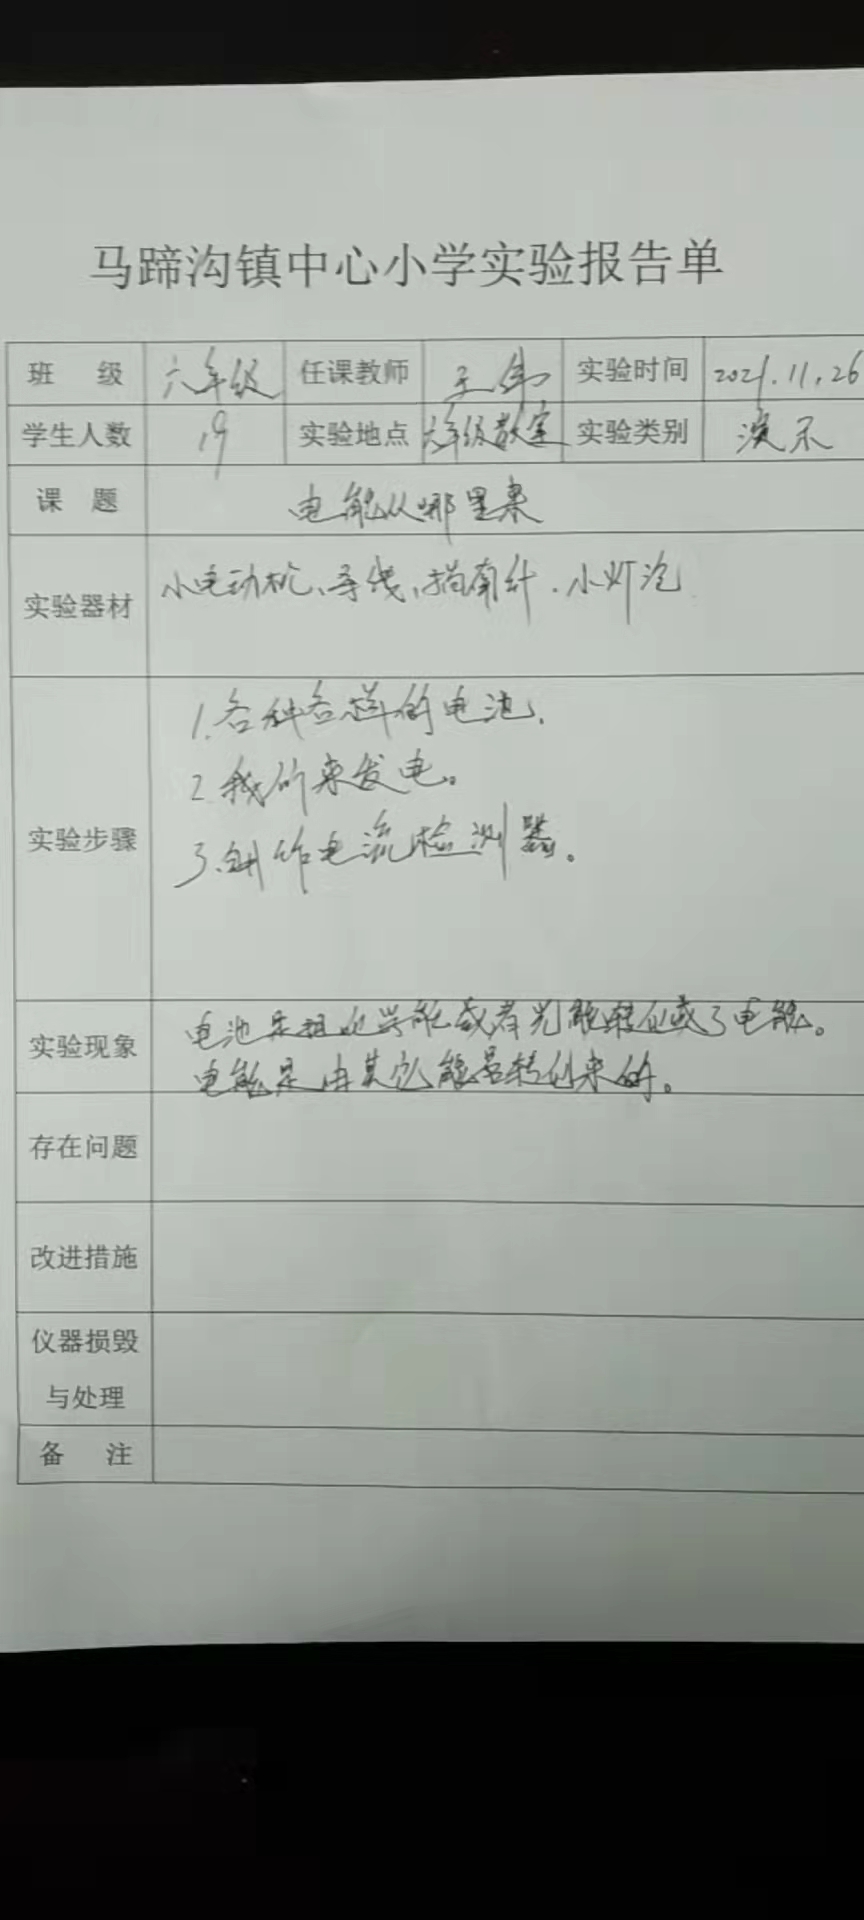 马蹄沟镇中心小学实验报告单
班 级 六年级 任课教师 王伟 实验时间 2021.11.26
学生人数 19 实验地点 六年级教室 实验类别 演示
课 题 电能从哪里来
实验器材 小电动机、导线、指南针.小灯泡
实验步骤
1.各种各样的电池.
2.我们来发电。
3.制作电流检测器。
实验现象
电池是把化学能或者光能转化成了电能。
电能是由其它能量转化来的。
存在问题
改进措施
仪器损毁
与处理
备 注